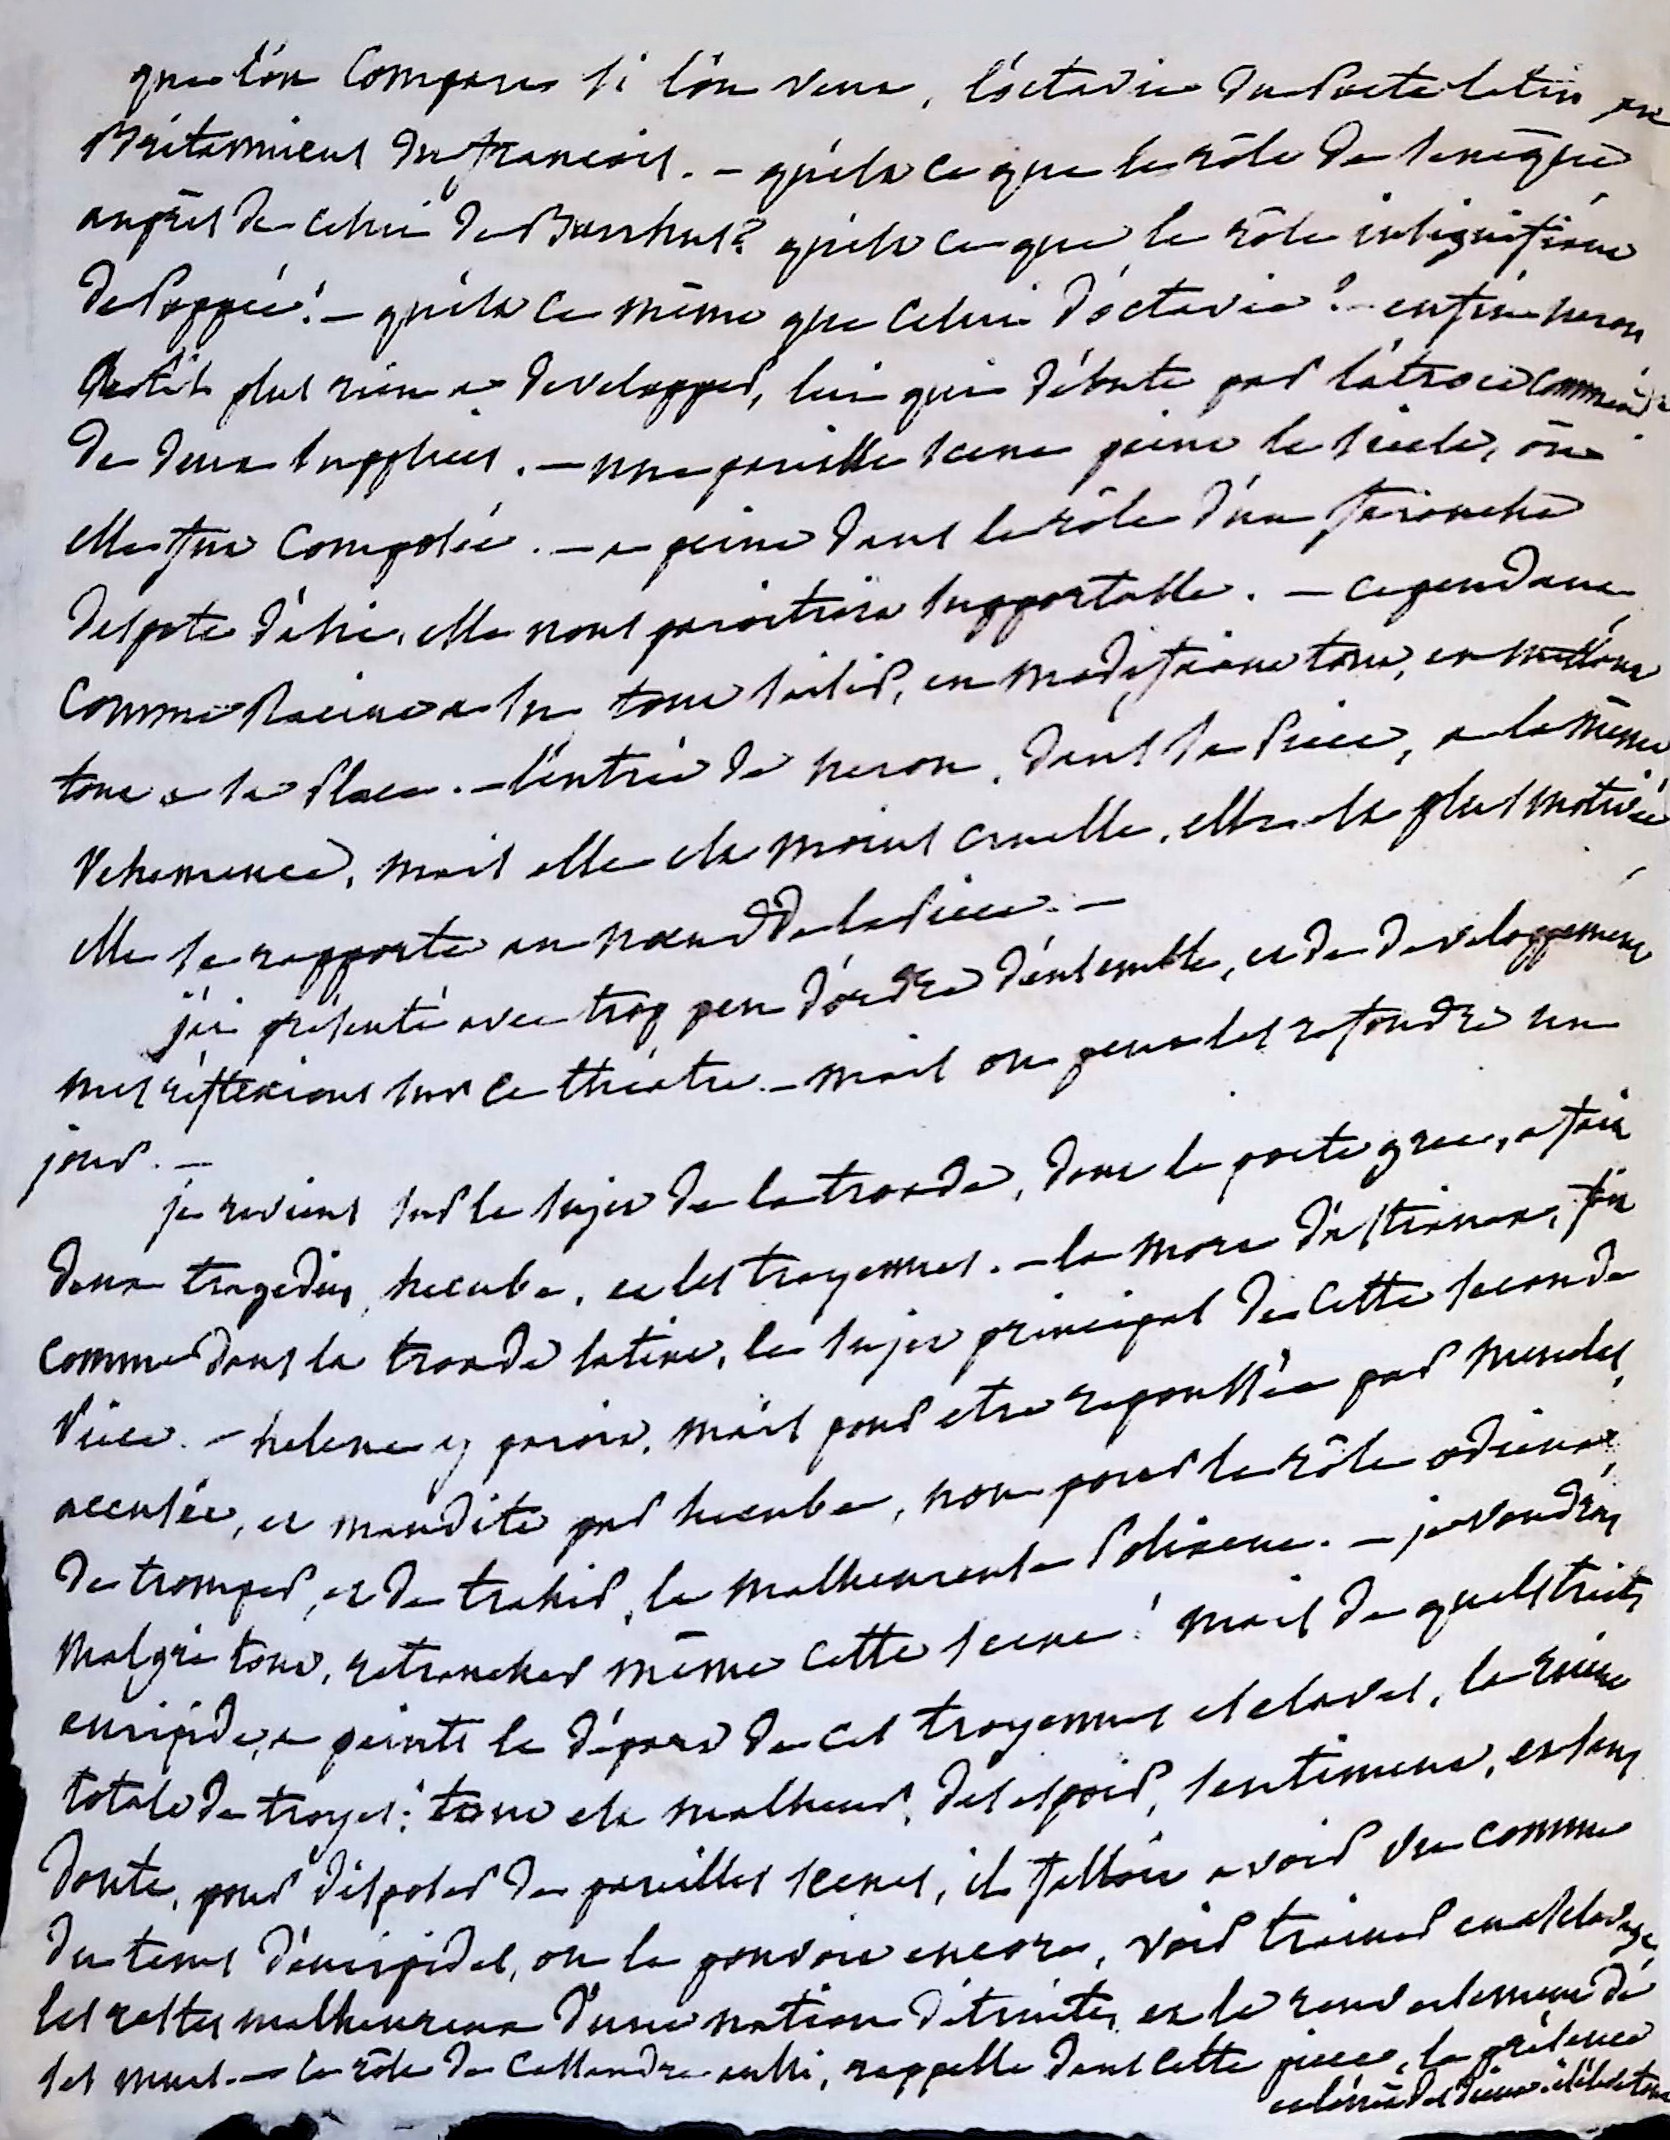 que l'on compare si l'on veut, l'octavie du Poete latin au
Britannicus du francois. – qu'est ce que le rôle de seneque
auprès de celui de Burrhus? qu'est ce que le rôle insignifiant
de Poppée! – qu'est ce même que celui d'octavie? – enfin neron
plus rien a developper, lui qui débute par l'atroce commande
de deux supplices. – une pareille scene peint le siecle, où
elle fut composée. – a peine dans le rôle d'un farouche
despote d'asie, elle nous paroitroit supportable. – cependant,
comme Racine a su tout saisir, en modifiant tout, en mettant
tout a sa place. – l'entrée de neron, dans sa Piece, a la même
vehemence, mais elle est moins cruelle, elle est plus motivée
elle se rapporte au nœud de la Piece. –
j'ai présenté avec trop peu d'ordre d'ensemble, et de developpement
mes réflexions sur ce théatre. – mais on peut les refondre un
jour. –
je reviens sur le sujet de la troade, dont le poete grec, a fait
deux tragedies, hecube, et les troyennes. – la mort d'astianax, fait
comme dans la troade latine, le sujet principal de cette seconde
Piece. – helene y paroit, mais pour etre repoussée par menelas,
accusée, et maudite par hecube, non pour le rôle odieux,
de tromper, et de trahir, la malheureuse Polixene. – je voudrois
malgré tout, retrancher même cette scene! mais de quels traits
euripide, a peint le départ de ces troyennes esclaves, la ruine
totale de troyes; tout est malheur, desespoir, sentiment, et sans
doute, pour disposer de pareilles scenes, il falloit avoir vu comme
du tems d'euripides, on le pouvoit encore, voir trainer en esclavage,
les restes malheureux d'une nation détruite, et le renversement de
ses murs. – le rôle de Cassandre aussi, rappelle dans cette piece, la présence